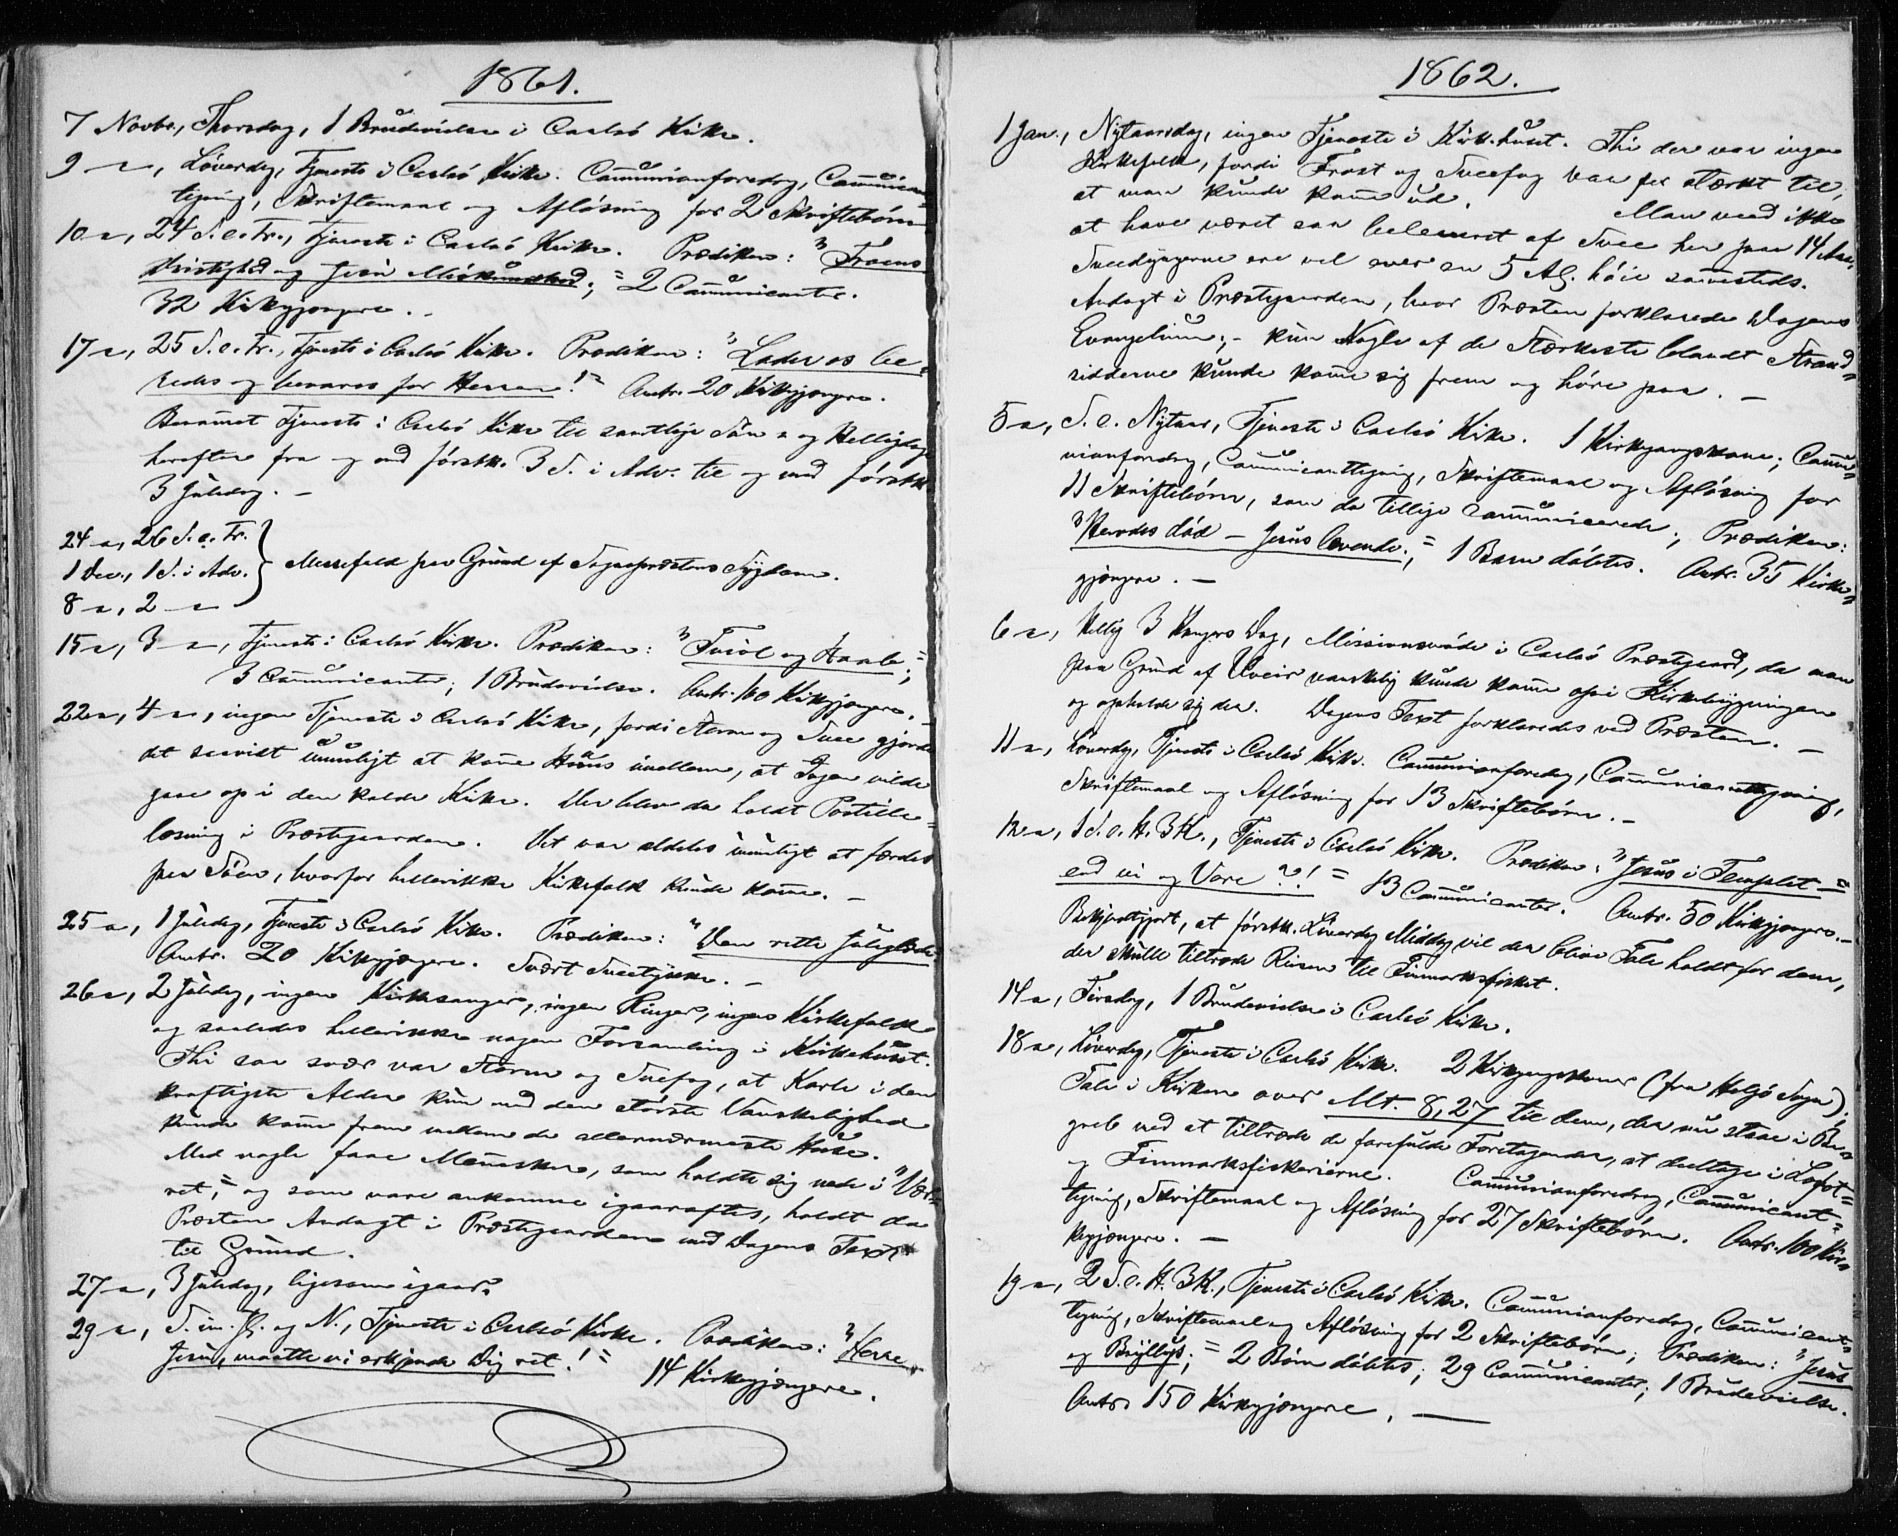 1861.
7 Novbr., Thorsdag, 1 Brudevielse i Carlsö Kirke.
9 –"–, Löverdag, Tjeneste i Carlsö Kirke. Communionforedrag, Communican-
tegning, Skriftemaal og Aflösning for 2 Skriftebörn.
10 –"–, 24 S. e. Tr., Tjeneste i Carlsö Kirke. Prædiken: "Troens
Dristighed og Jesu Miskundhed;" 2 Communicanter.
32 Kirkegjængere. –
17 –"–, 25 S. e. Tr., Tjeneste i Carlsö Kirke. Prædiken: "Lader os be-
redes og bevares for Herren!" Omtr. 20 Kirkegjængere.
Berammet Tjeneste i Carlsö Kirke til samtlige Sön- og Helligdage
herefter fra og med förstk. 3 S. i Adv. til og med förstk.
3 Juledag. –
24 –"–, 26 S. e. Tr.
1 Dec., 1 S. i Adv. } Messefald paa Grund af Sognepræstens Sygdom.
8 –"–, 2 –"–
15 –"–, 3 –"–, Tjeneste i Carlsö Kirke. Prædiken: "Tvivl og Haab;"
3 Communicanter; 1 Brudevielse. Omtr. 100 Kirkegjængere. –
22 –"–, 4 –"–, ingen Tjeneste i Carlsö Kirke, fordi Storm og Snee gjorde
det saavidt umuligt at komme Huus imellem, at Ingen vilde
gaae op i den kolde Kirke. Der blev da holdt Postille-
læsning i Præstegaarden. Det var aldeles umuligt at færdes
paa Söen, hvorfor hellerikke Kirkefolk kunde komme. –
25 –"–, 1 Juledag, Tjeneste i Carlsö Kirke. Prædiken: "Den rette Juleglæde."
Omtr. 20 Kirkegjængere. Svært Sneetykke. –
26 –"–, 2 Juledag, ingen Kirkesanger, ingen Ringer, ingen Kirkefolk
og saaledes hellerikke nogen Forsamling i Kirkehuset.
Thi saa svær var Storm og Sneefog, at Karle i den
kraftigste Alder kun med den störste Vanskelighed
kunde komme frem mellem de allernærmeste Huse.
Med nogle faae Mennesker, som holdte sig nede i "Væ-
ret," og som vare ankomne igaaraftes, holdt da
Præsten Andagt i Præstegaarden med Dagens Text
til Grund.
27 –"–, 3 Juledag, ligesom igaar.
29 –"–, S. m. J. og N., Tjeneste i Carlsö Kirke. Prædiken: "Herre
Jesu, maatte vi erkjende Dig ret!" 14 Kirkegjængere.
1862.
1 Jan., Nytaarsdag, ingen Tjeneste i Kirkehuset. Thi der var ingen
Kirkefolk, fordi Frost og Sneefog var for stærkt til,
at man kunde komme ud. Man veed ikke
at have været saa beleiret af Snee her paa 14 Aar.
Sneedyngerne ere vel over en 5 Al. höie sammesteds.
Andagt i Præstegaarden, hvor Præsten forklarede Dagens
Evangelium; – kun Nogle af de stærkeste blandt Strand-
sidderne kunde komme sig frem og höre paa. –
5 –"–, S. e. Nytaar, Tjeneste i Carlsö Kirke. 1 Kirkegangskone; Commu-
nionforedrag, Communicanttegning, Skriftemaal og Aflösning for
11 Skriftebörn, som da tillige communicerede; Prædiken:
"Herodes död – Jesus levende;" 1 Barn döbtes. Omtr. 35 Kirke-
gjængere. –
6 –"–, Hellig 3 Kongers Dag, Missionsmöde i Carlsö Præstegaard, da man
paa Grund af Uveir vanskelig kunde komme op i Kirkebygningen
og opholde sig der. Dagens Text forklaredes ved Præsten. –
11 –"–, Löverdag, Tjeneste i Carlsö Kirke. Communionforedrag, Communicanttegning,
Skriftemaal og Aflösning for 13 Skriftebörn. –
12 –"–, 1 S. e. H. 3 K., Tjeneste i Carlsö Kirke. Prædiken: "Jesus i Templet –
end vi og Vore?!" 13 Communicanter. Omtr. 50 Kirkegjængere. –
Bekjendtgjort, at förstk. Löverdag Middag vil der blive Tale holdt for dem,
der skulle tiltræde Reisen til Finmarksfisket.
14 –"–, Tirsdag, 1 Brudevielse i Carlsö Kirke.
18 –"–, Löverdag, Tjeneste i Carlsö Kirke. 2 Kirkegangskoner (fra Helgö Sogn);
Tale i Kirken over Mt. 8,27 til dem, der nu staae i Be-
greb med at tiltræde de farefulde Foretagender, at deeltage i Lofot-
og Finmarksfiskerierne. Communionforedrag, Communicant-
tegning, Skriftemaal og Aflösning for 27 Skriftebörn. Omtr. 100 Kir-
kegjængere. –
19 –"–, 2 S. e. H. 3 K., Tjeneste i Carlsö Kirke. Communionforedrag, Communicant-
tegning, Skriftemaal og Aflösning for 2 Skriftebörn; Prædiken: "Jesus
og Bryllup;" 2 Börn döbtes; 29 Communicanter; 1 Brudevielse.
Omtr. 150 Kirkegjængere. –